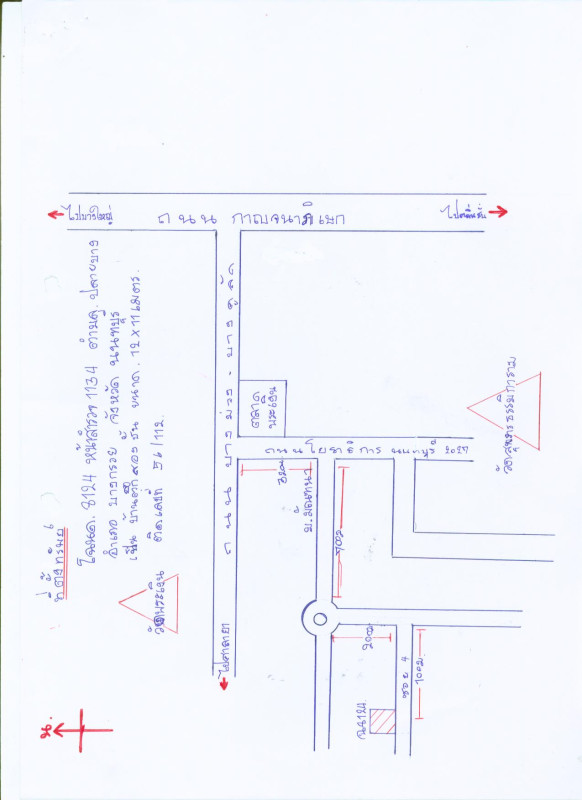 ที่ตั้งทรัพย์
โฉนด. 8124 หน้าสำรวจ 1134 ตำบล. ปลายบาง
อำเภอ บางกรวย จังหวัด นนทบุรี
เป็น บ้านตึกสองชั้น ขนาด. 12 x 11 เมตร.
ติดเลขที่ 56/112.
น.
ไปบางใหญ่
ถนน กาญจนาภิเษก
ไปตลิ่งชัน
ถนน บางม่วง - บางคูลัด
ไปศาลายา
ตลาด
พระเงิน
วัดพระเงิน
ถนนโยธาธิการ นนทบุรี 2027
วัดสุนทรธรรมิการาม
320ม
ม.มัณฑนา
700ม
200ม
ซอย 4
100ม
ฉ.8124